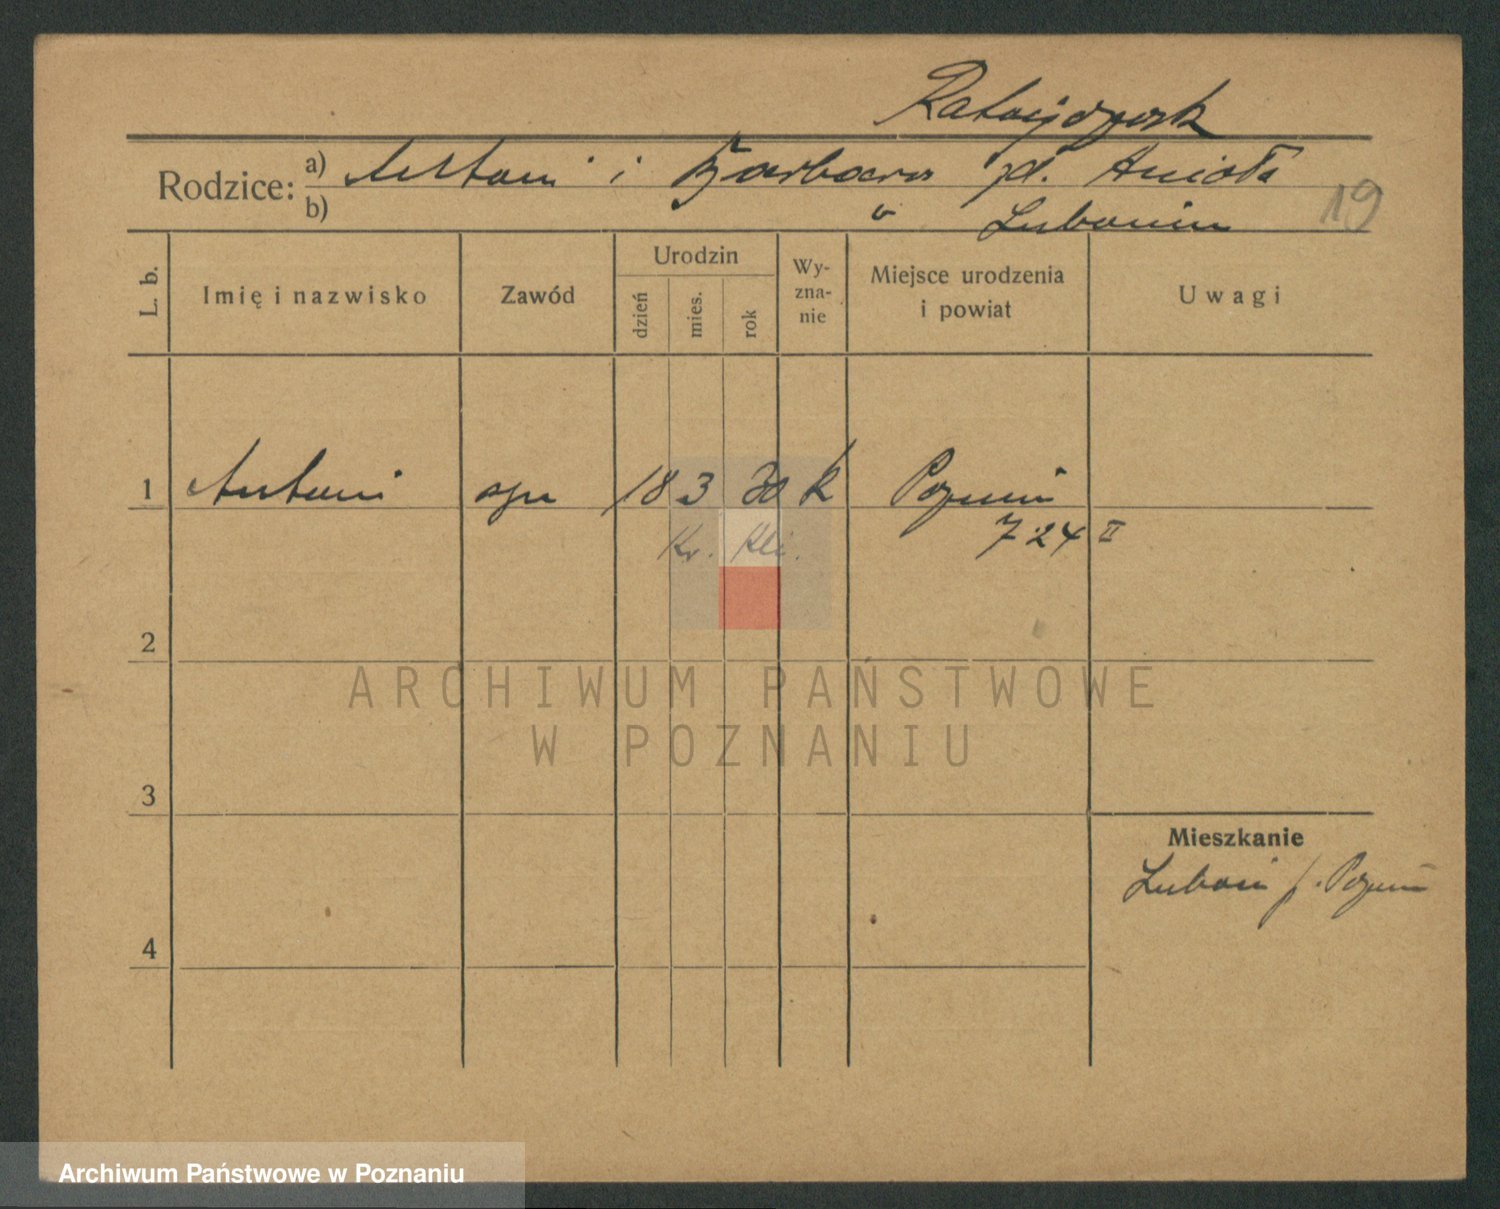 Ratajczak
Rodzice: a) Antoni i Barbara zd. Anioła
b) w Luboniu
19
L. b.
Imię i nazwisko
Zawód
Urodzin
dzień
mies.
rok
Wy-
zna-
nie
Miejsce urodzenia
i powiat
Uwagi
1 Antoni syn 18 3 30 k Poznań
Kr. Kli. 724 II
2
ARCHIWUM PAŃSTWOWE
W POZNANIU
3
Mieszkanie
Luboń p. Poznań
4
Archiwum Państwowe w Poznaniu